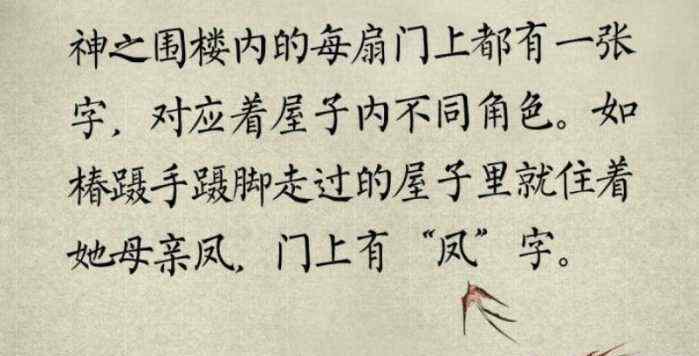 神之围楼内的每扇门上都有一张
字，对应着屋子内不同角色。如
椿蹑手蹑脚走过的屋子里就住着
她母亲凤，门上有“凤”字。